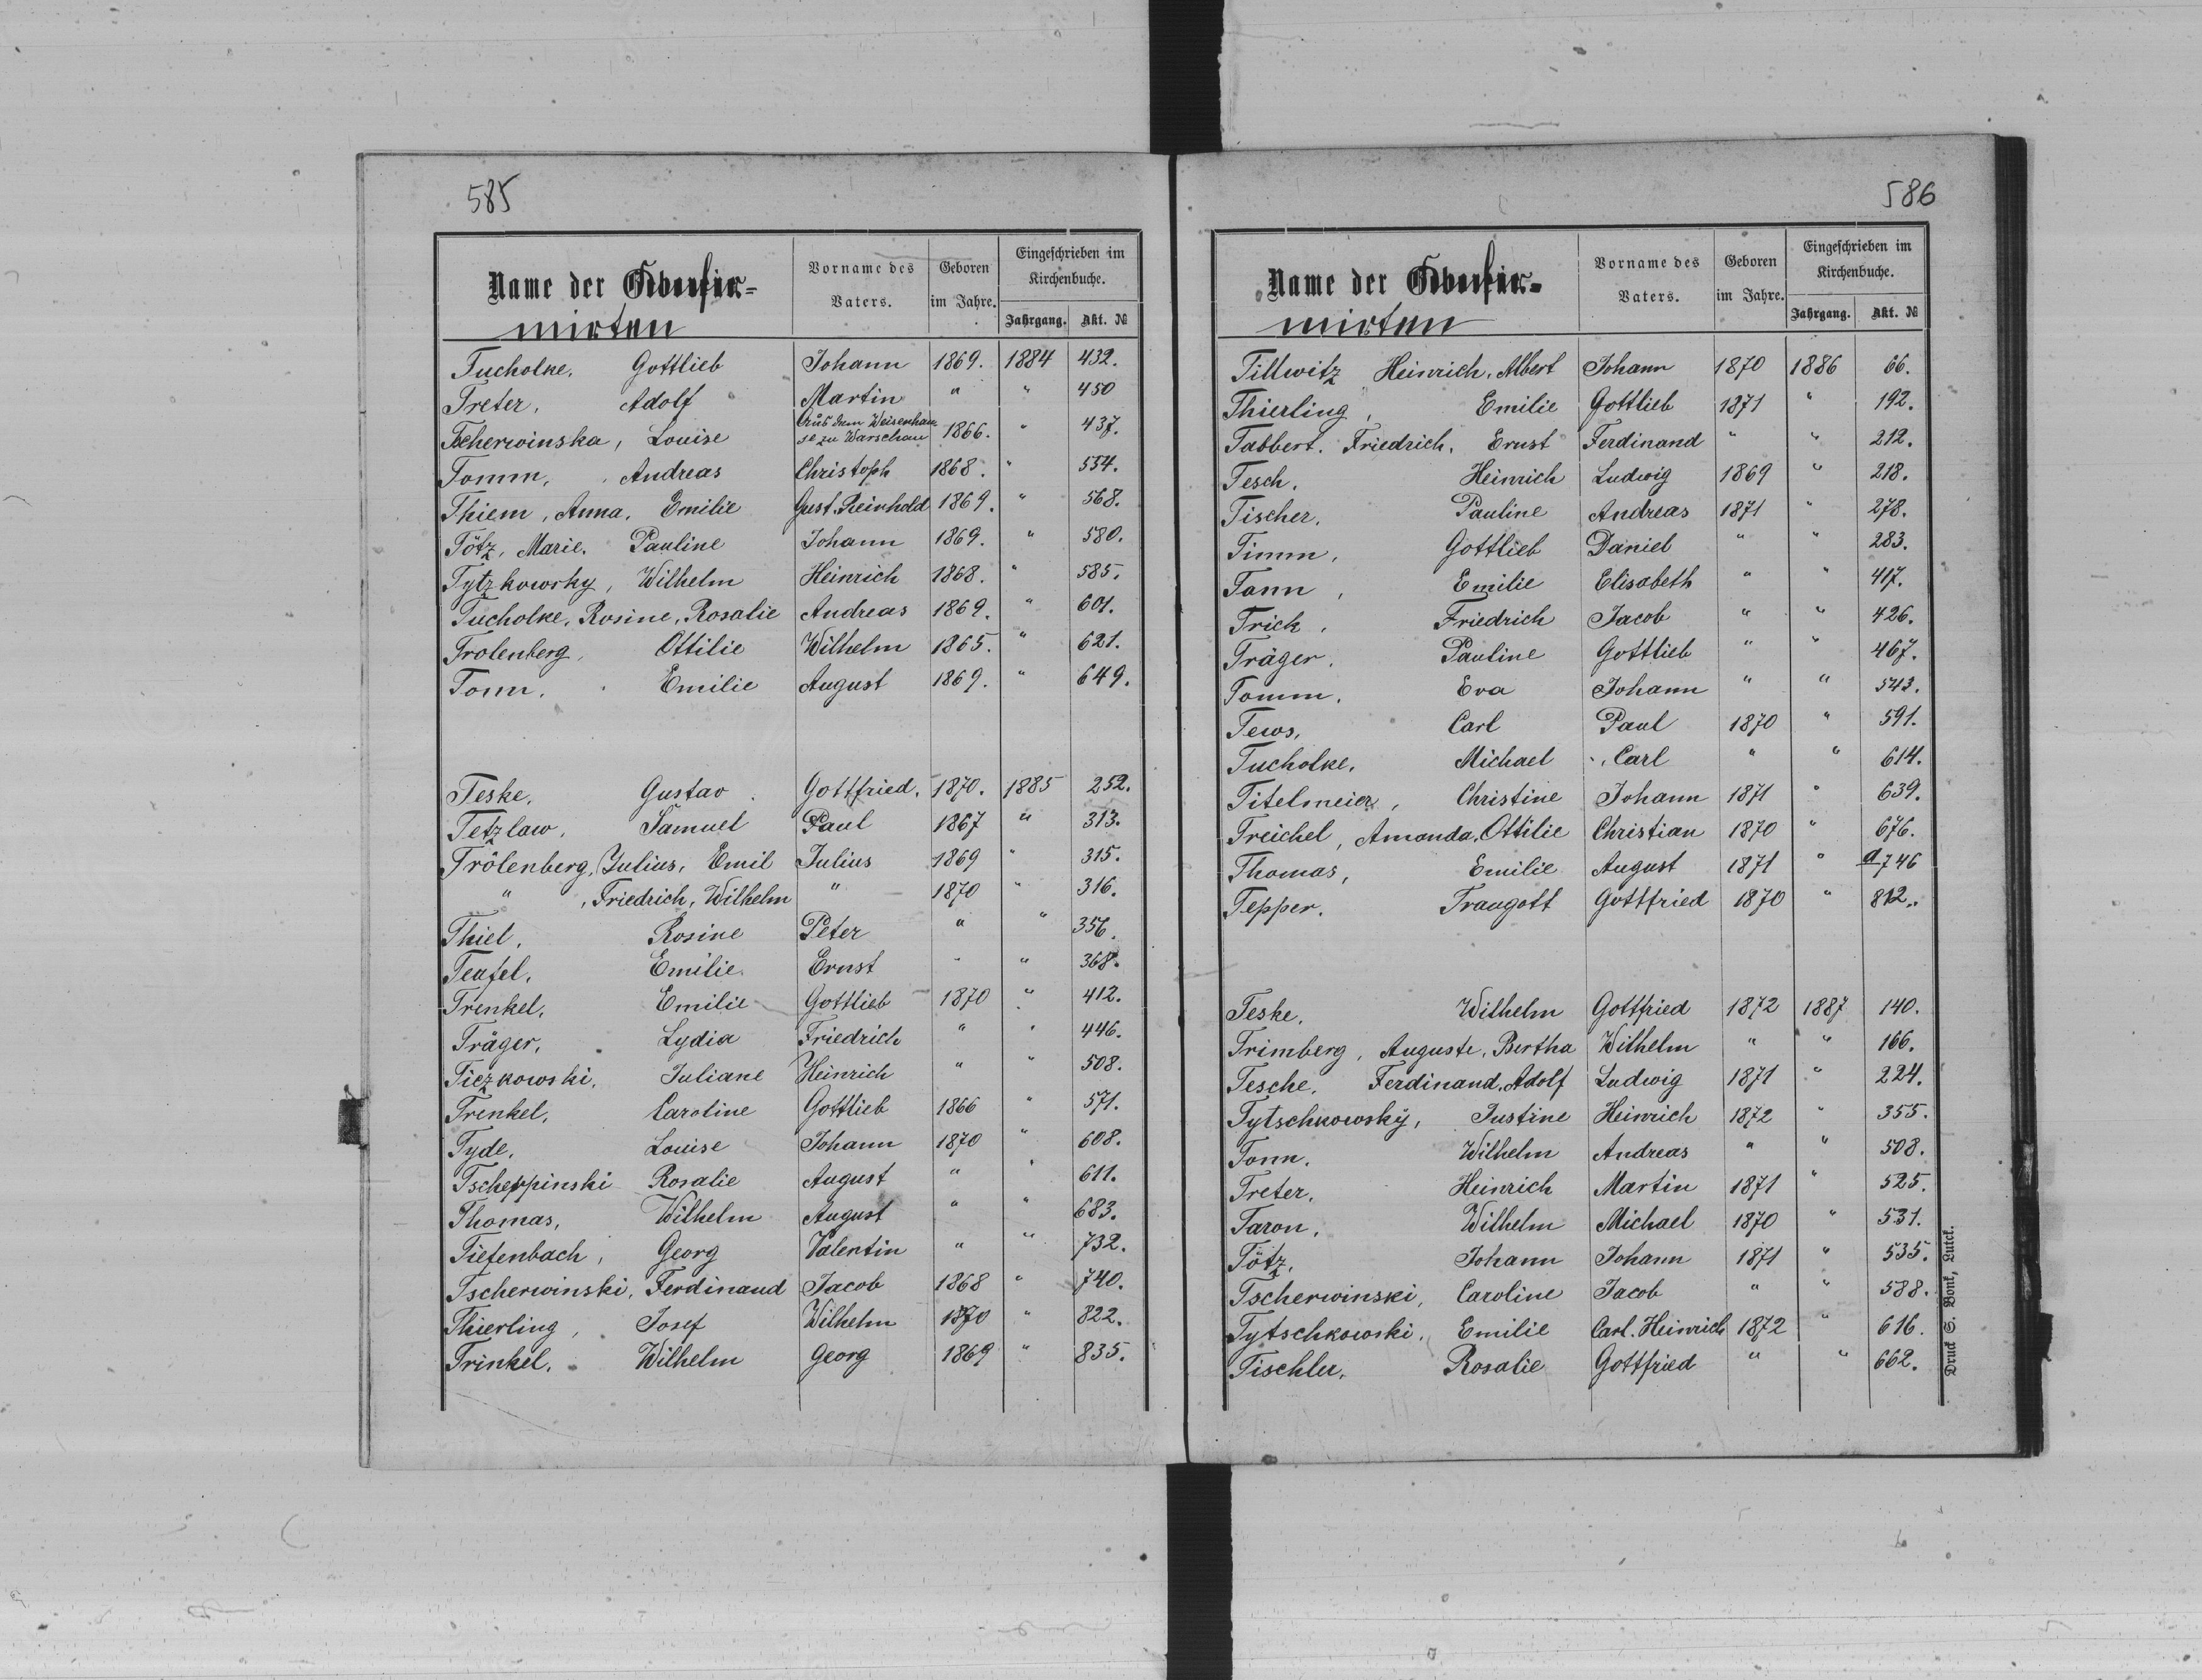 585
Name der Confir-
mirten
Vorname des Vaters.
Geboren im Jahre.
Eingeschrieben im Kirchenbuche.
Jahrgang. Akt. №
Tucholke, Gottlieb Johann 1869. 1884 432.
Treter, Adolf Martin " " 450
Tscherwinska, Louise Aus dem Weisenhau-
se zu Warschau 1866. " 437.
Tomm, Andreas Christoph 1868. " 554.
Thiem, Anna, Emilie Gust. Reinhold 1869. " 568.
Tötz, Marie, Pauline Johann 1869. " 580.
Tytzkowsky, Wilhelm Heinrich 1868. " 585.
Tucholke, Rosine, Rosalie Andreas 1869. " 601.
Trolenberg, Ottilie Wilhelm 1865. " 621.
Tonn, Emilie August 1869. " 649.
Teske, Gustav Gottfried, 1870. 1885 252.
Tetzlaw, Samuel Paul 1867 " 313.
Trölenberg, Julius, Emil Julius 1869 " 315.
" , Friedrich, Wilhelm " 1870 " 316.
Thiel, Rosine Peter " " 356.
Teufel, Emilie Ernst " " 368.
Trenkel, Emilie Gottlieb 1870 " 412.
Träger, Lydia Friedrich " " 446.
Ticzkowski, Juliane Heinrich " " 508.
Trenkel, Caroline Gottlieb 1866 " 571.
Tyde, Louise Johann 1870 " 608.
Tscheppinski Rosalie August " " 611.
Thomas, Wilhelm August " " 683.
Tiefenbach, Georg Valentin " " 732.
Tscherwinski, Ferdinand Jacob 1868 " 740.
Thierling, Josef Wilhelm 1870 " 822.
Trinkel, Wilhelm Georg 1869 " 835.
586
Name der Confir-
mirten
Vorname des Vaters.
Geboren im Jahre.
Eingeschrieben im Kirchenbuche.
Jahrgang. Akt. №
Tillwitz Heinrich, Albert Johann 1870 1886 66.
Thierling, Emilie Gottlieb 1871 " 192.
Tabbert. Friedrich, Ernst Ferdinand " " 212.
Tesch, Heinrich Ludwig 1869 " 218.
Tischer, Pauline Andreas 1871 " 278.
Timm, Gottlieb Daniel " " 283.
Tann, Emilie Elisabeth " " 417.
Trick, Friedrich Jacob " " 426.
Träger, Pauline Gottlieb " " 467.
Tomm, Eva Johann " " 543.
Tews, Carl Paul 1870 " 591.
Tucholke, Michael Carl " " 614.
Titelmeier, Christine Johann 1871 " 639.
Treichel, Amanda, Ottilie Christian 1870 " 676.
Thomas, Emilie August 1871 " a746
Tepper, Traugott Gottfried 1870 " 812.
Teske, Wilhelm Gottfried 1872 1887 140.
Trimberg, Auguste, Bertha Wilhelm " " 166.
Tesche, Ferdinand, Adolf Ludwig 1871 " 224.
Tytschkowsky, Justine Heinrich 1872 " 355.
Tonn, Wilhelm Andreas " " 508.
Treter, Heinrich Martin 1871 " 525.
Taron, Wilhelm Michael 1870 " 531.
Tötz, Johann Johann 1871 " 535.
Tscherwinski, Caroline Jacob " " 588.
Tytschkowski, Emilie Carl. Heinrich 1872 " 616.
Tischler, Rosalie Gottfried " " 662.
Druck S. Bonk, Lutck.